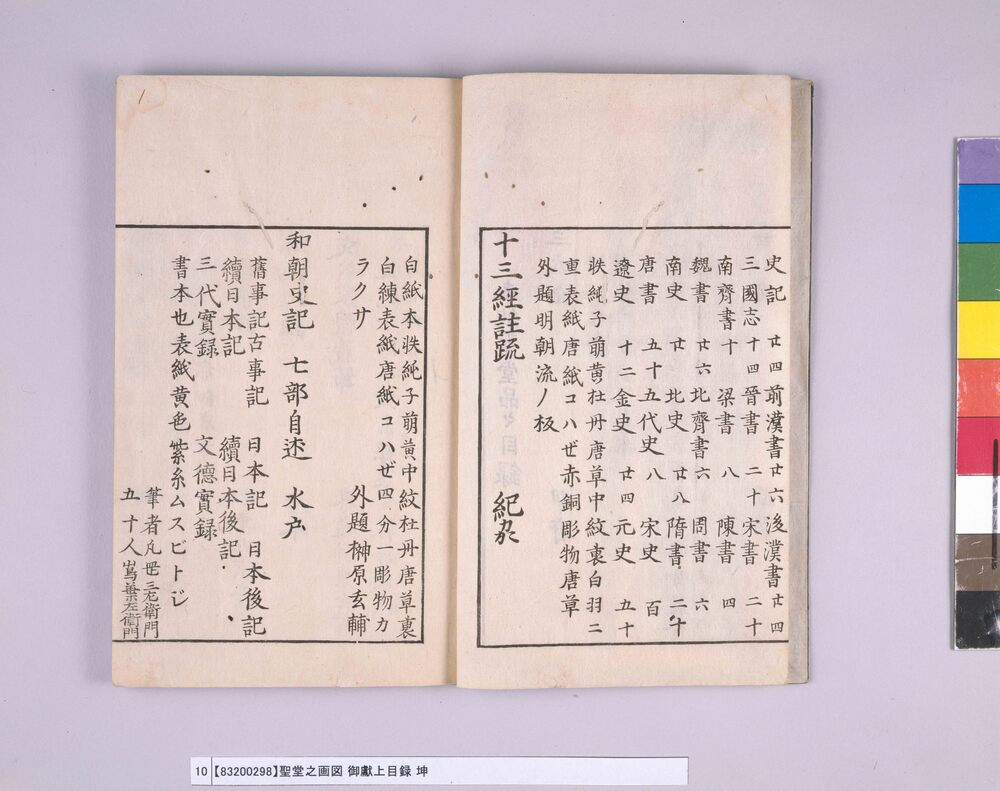 史記 廿四 前漢書 廿六 後漢書 廿四
三國志 十四 晉書 二十 宋書 二十
南齊書 十 梁書 八 陳書 四
魏書 廿六 北齊書 六 周書 六
南史 廿 北史 廿八 隋書 二十
唐書 五十 五代史 八 宋史 百
遼史 十二 金史 廿四 元史 五十
帙純子萌黄杜丹唐草中紋裏白羽二
重表紙唐紙コハぜ赤銅彫物唐草
外題明朝流ノ板
十三經註疏 紀州
白紙本帙純子萌黄中紋杜丹唐草裏
白練表紙唐紙コハぜ四分一彫物カ
ラクサ 外題榊原玄輔
和朝史記 七部自迯 水戸
舊事記 古事記 日本記 日本後記
續日本記 續日本後記
三代實録 文德實録
書本也表紙黄色紫糸ムスビトジ
筆者凡毌三左衛門
五十人嶌葉左衛門
10 【83200298】聖堂之画図 御獻上目録 坤